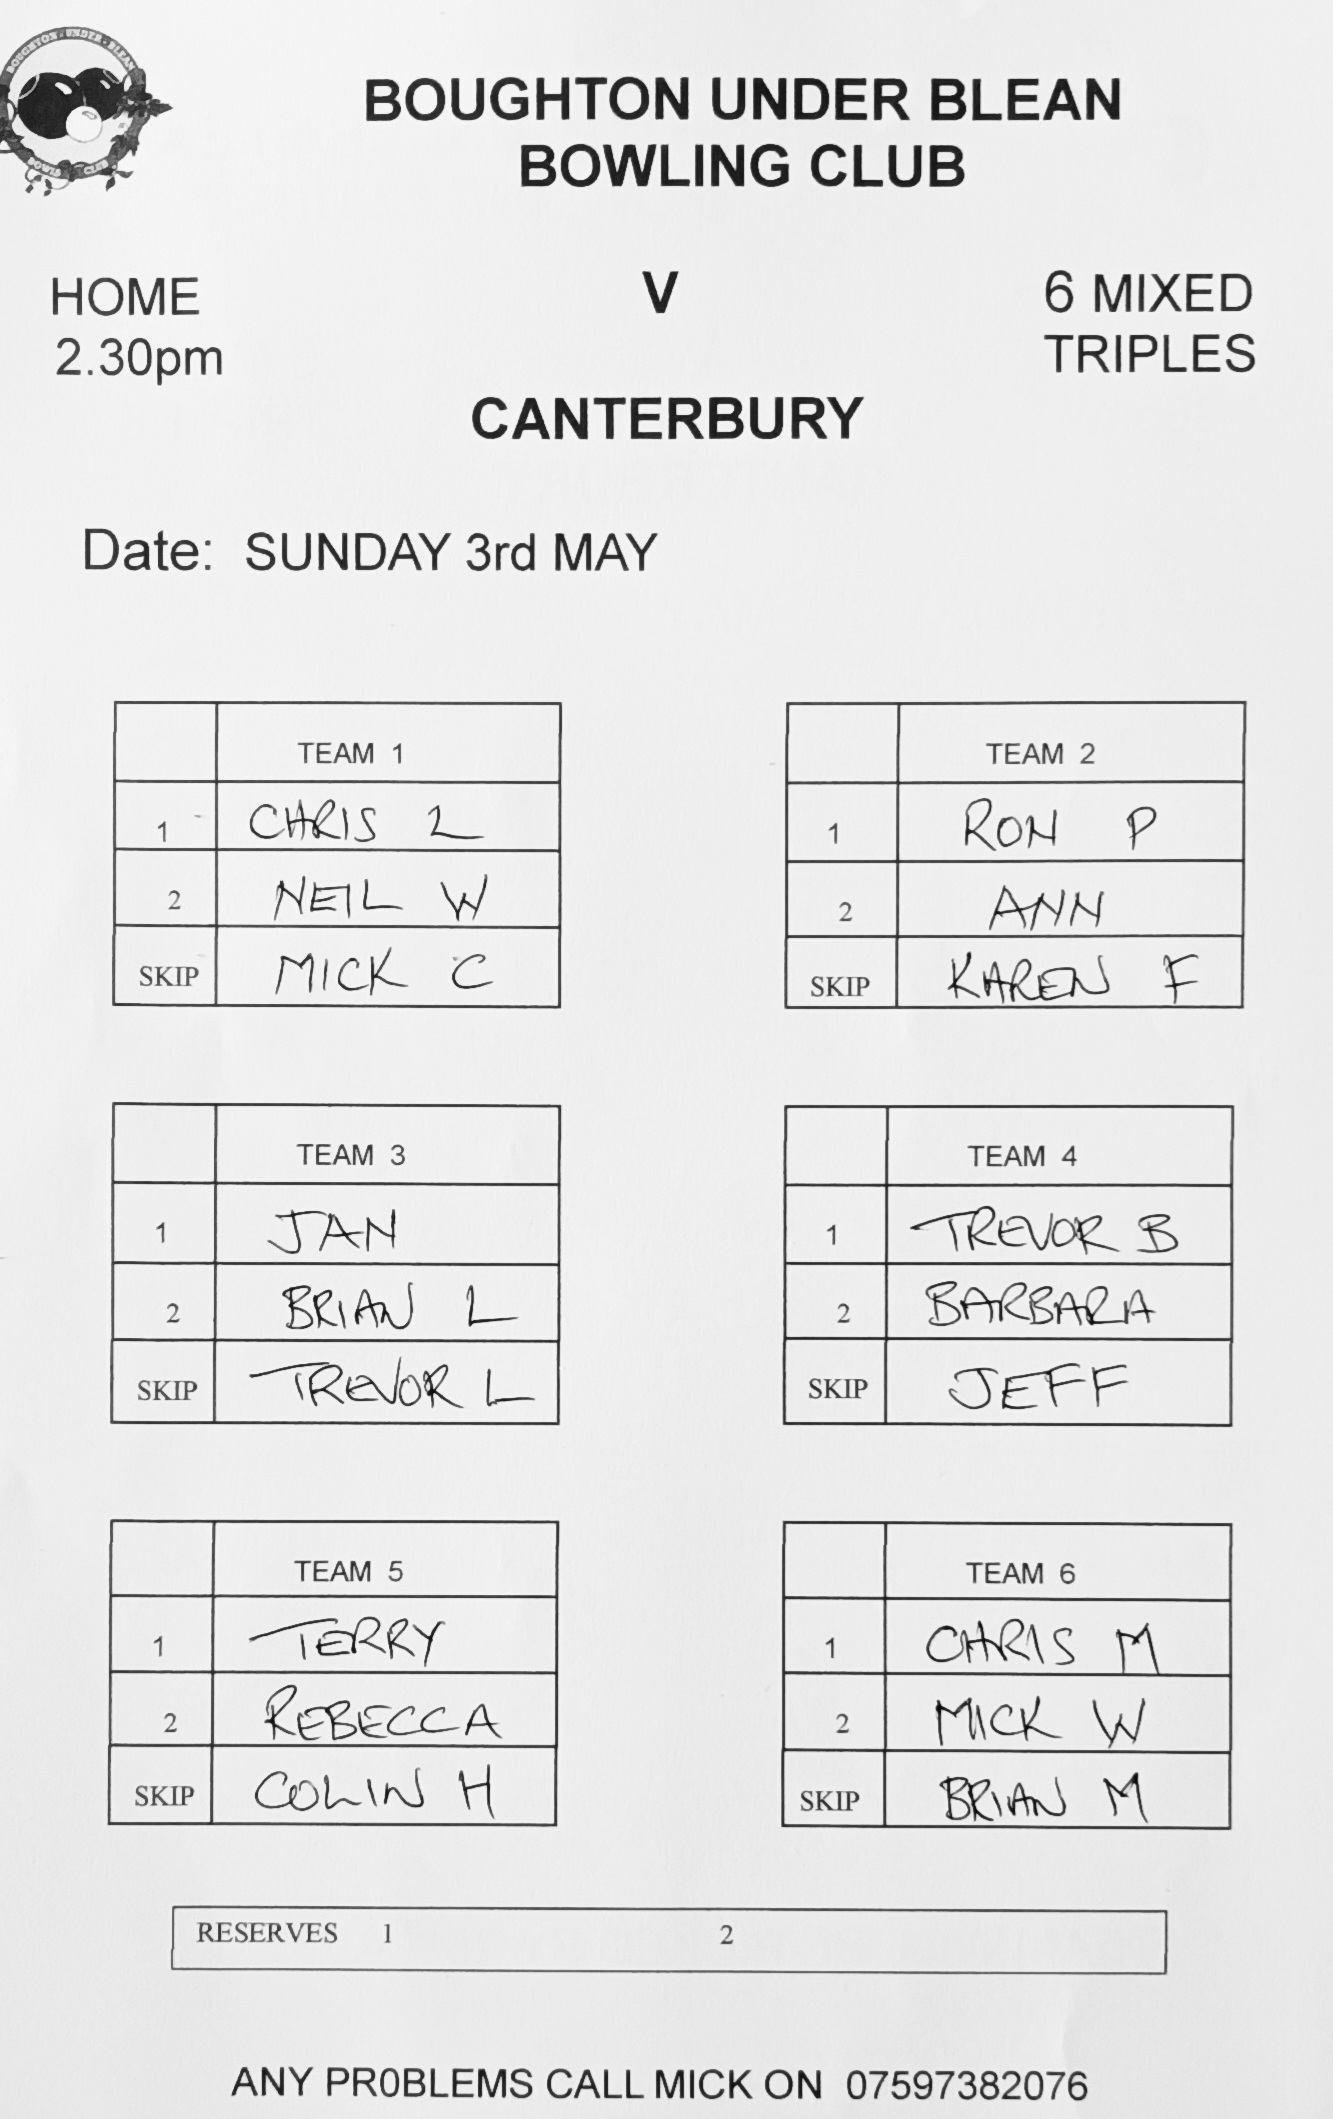 BOUGHTON · UNDER · BLEAN
BOWLS CLUB
BOUGHTON UNDER BLEAN
BOWLING CLUB
HOME V 6 MIXED
2.30pm TRIPLES
CANTERBURY
Date: SUNDAY 3rd MAY
TEAM 1
1 CHRIS L
2 NEIL W
SKIP MICK C
TEAM 2
1 RON P
2 ANN
SKIP KAREN F
TEAM 3
1 JAN
2 BRIAN L
SKIP TREVOR L
TEAM 4
1 TREVOR B
2 BARBARA
SKIP JEFF
TEAM 5
1 TERRY
2 REBECCA
SKIP COLIN H
TEAM 6
1 CHRIS M
2 MICK W
SKIP BRIAN M
RESERVES 1 2
ANY PR0BLEMS CALL MICK ON 07597382076